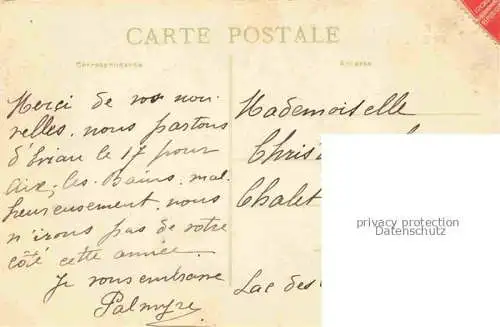 CARTE POSTALE
Correspondance
Adresse
Merçi de vos nou-
velles, nous partons
d'Evian le 17 pour
Aix-les-Bains, mal-
heureusement, nous
n'irons pas de votre
côté cette année.
Je vous embrasse
Palmyre
Mademoiselle
Chalet
Lac des
privacy protection
Datenschutz